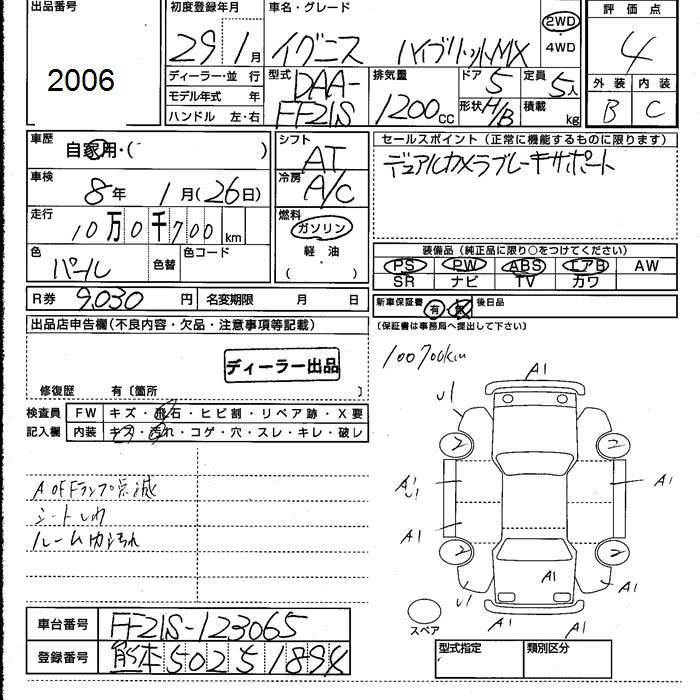 出品番号
2006
初度登録年月
29 1月
車名・グレード
イグニス ハイブリットMX
2WD
・
4WD
評価点
4
外装 内装
B C
ディーラー・並 行
モデル年式 年
ハンドル 左・右
型式
DAA-
FF21S
排気量
1200cc
ドア 5
形状 H/B
定員 5人
積載 kg
車歴
自家用・( )
車検
8年 1月(26日)
走行
10万0千700km
色
パール
色替
色コード
シフト
AT
冷房
A/C
燃料
ガソリン
軽・油
( ・ )
セールスポイント(正常に機能するものに限ります)
デュアルカメラブレーキサポート
装備品(純正品に限り○をつけてください)
PS PW ABS エアB AW
SR ナビ TV カワ
R券 9,030円 名変期限 月 日
新車保証書 有・無 後日品
(保証書は事務局へ提出して下さい)
出品店申告欄(不良内容・欠品・注意事項等記載)
ディーラー出品
修復歴 有〔箇所 〕
検査員
記入欄
FW キズ・飛石・ヒビ割・リペア跡・X要
内装 キズ・汚れ・コゲ・穴・スレ・キレ・破レ
A OFFランプ点滅
シートしわ
ルーム内汚れ
100700km
A1
U1
2
2
A1
U1
A1
A1
2
2
U1
A1
A1
A1
A1
スペア
車台番号 FF21S-123065
登録番号 熊本502 5 1894
型式指定 類別区分